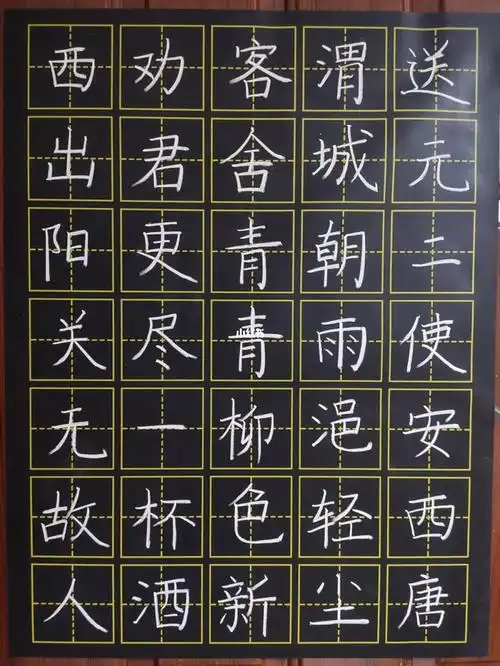 送元二使安西唐
渭城朝雨浥轻尘
客舍青青柳色新
劝君更尽一杯酒
西出阳关无故人